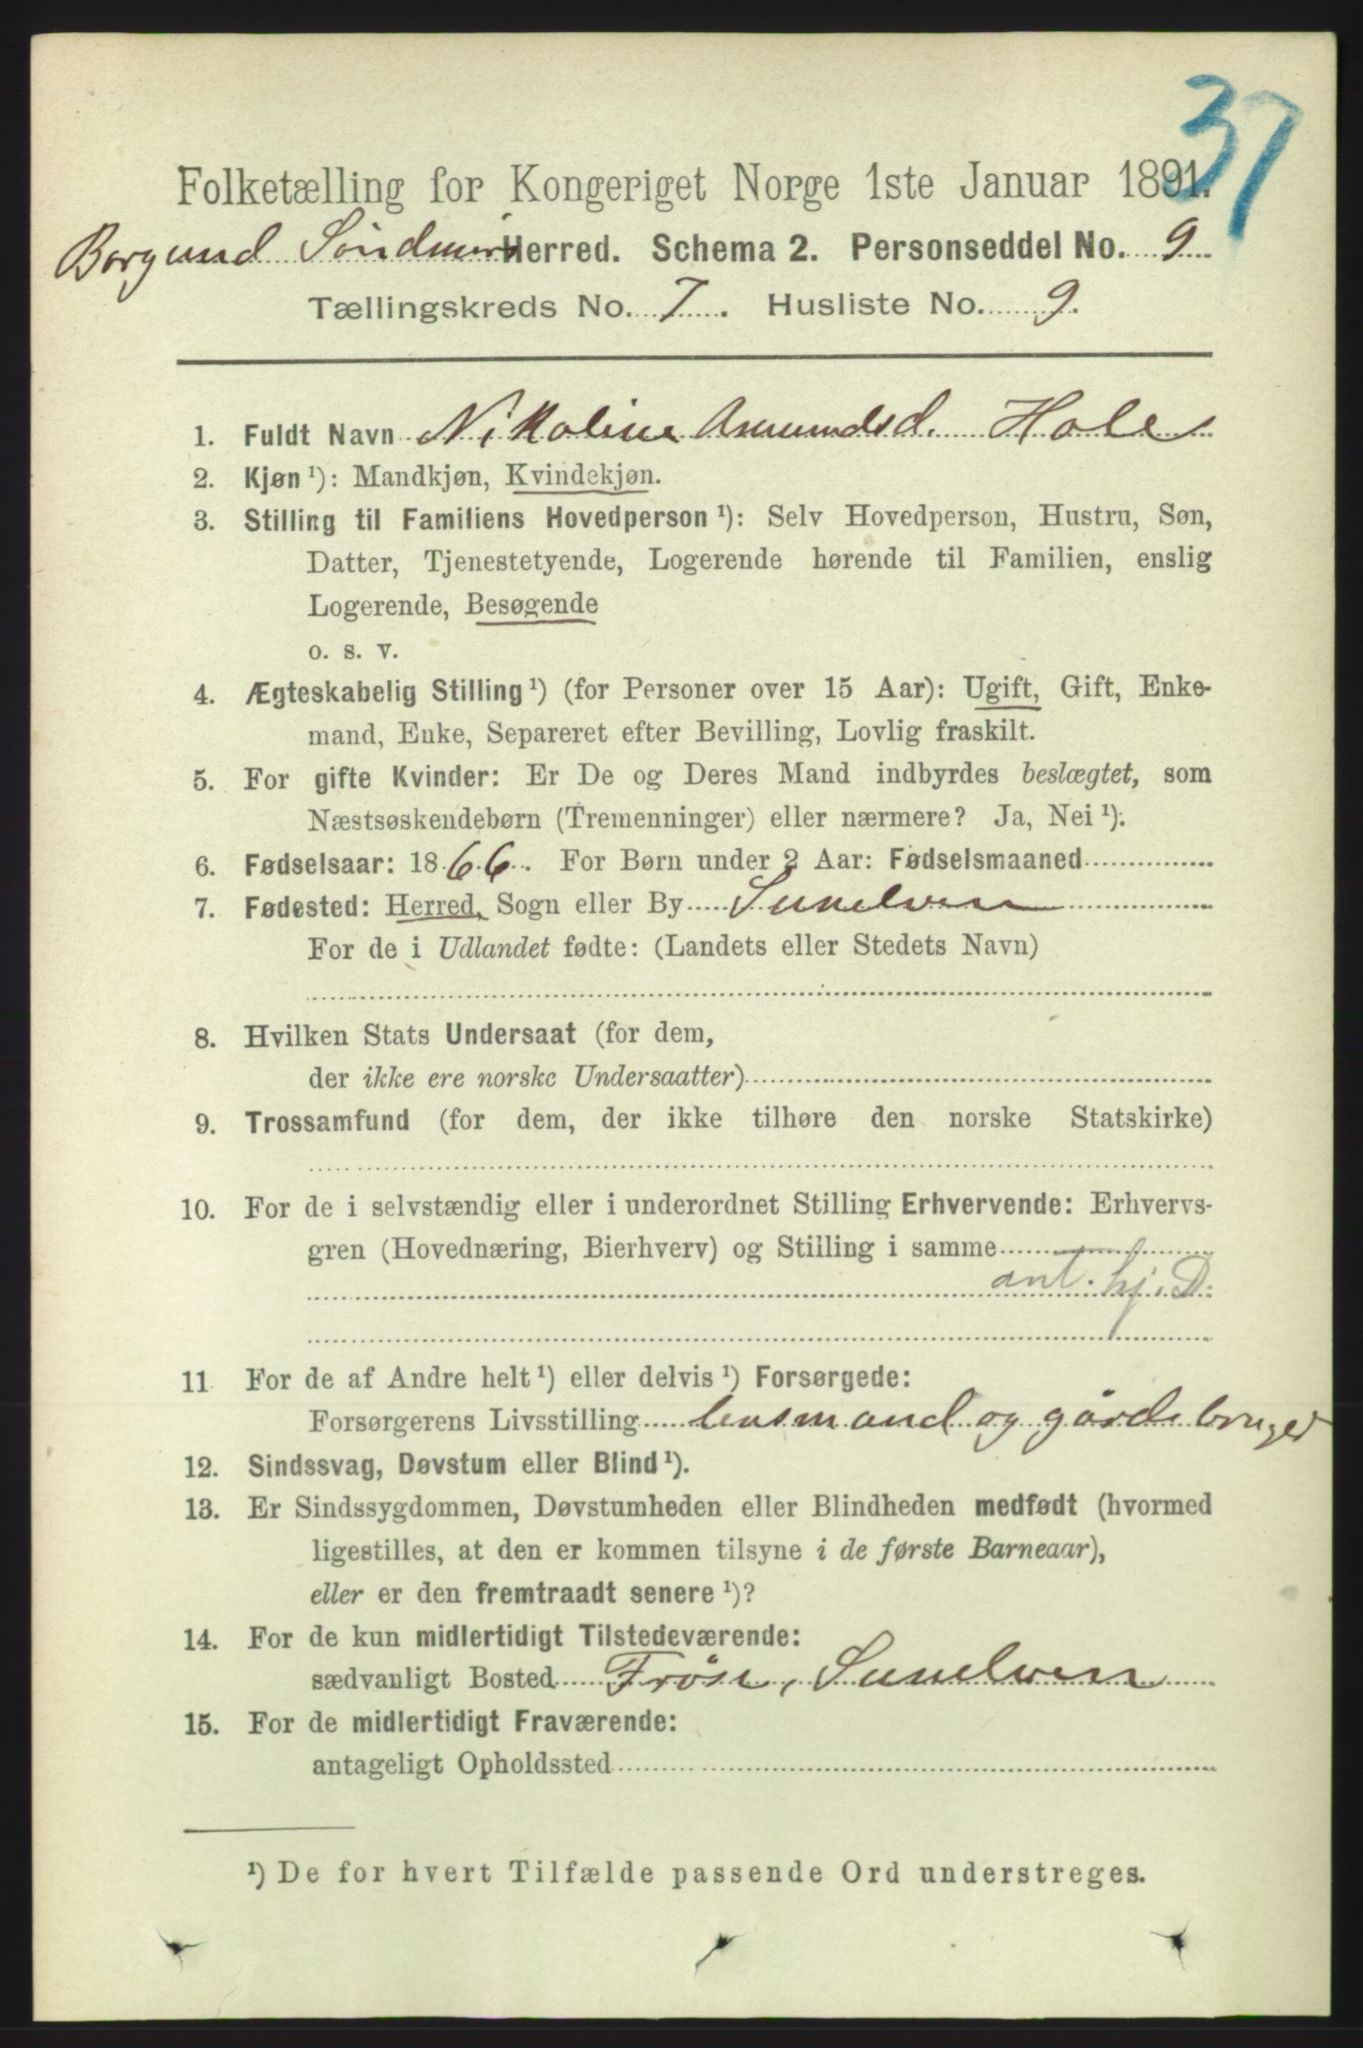 37
Folketælling for Kongeriget Norge 1ste Januar 1891.
Borgund Søndmør Herred. Schema 2. Personseddel No. 9
Tællingskreds No. 7. Husliste No. 9.
1. Fuldt Navn Nikoline Asmundsd. Hole
2. Kjøn ¹): Mandkjøn, Kvindekjøn.
3. Stilling til Familiens Hovedperson ¹): Selv Hovedperson, Hustru, Søn,
Datter, Tjenestetyende, Logerende hørende til Familien, enslig
Logerende, Besøgende
o. s. v.
4. Ægteskabelig Stilling ¹) (for Personer over 15 Aar): Ugift, Gift, Enke-
mand, Enke, Separeret efter Bevilling, Lovlig fraskilt.
5. For gifte Kvinder: Er De og Deres Mand indbyrdes beslægtet, som
Næstsøskendebørn (Tremenninger) eller nærmere? Ja, Nei ¹).
6. Fødselsaar: 1866. For Børn under 2 Aar: Fødselsmaaned
7. Fødested: Herred, Sogn eller By Sunelven
For de i Udlandet fødte: (Landets eller Stedets Navn)
8. Hvilken Stats Undersaat (for dem,
der ikke ere norske Undersaatter)
9. Trossamfund (for dem, der ikke tilhøre den norske Statskirke)
10. For de i selvstændig eller i underordnet Stilling Erhvervende: Erhvervs-
gren (Hovednæring, Bierhverv) og Stilling i samme
ant. hj. D.
11 For de af Andre helt ¹) eller delvis ¹) Forsørgede:
Forsørgerens Livsstilling lensmand og gårdebruger
12. Sindssvag, Døvstum eller Blind ¹).
13. Er Sindssygdommen, Døvstumheden eller Blindheden medfødt (hvormed
ligestilles, at den er kommen tilsyne i de første Barneaar),
eller er den fremtraadt senere ¹)?
14. For de kun midlertidigt Tilstedeværende:
sædvanligt Bosted Frøse, Sunelven
15. For de midlertidigt Fraværende:
antageligt Opholdssted
¹) De for hvert Tilfælde passende Ord understreges.